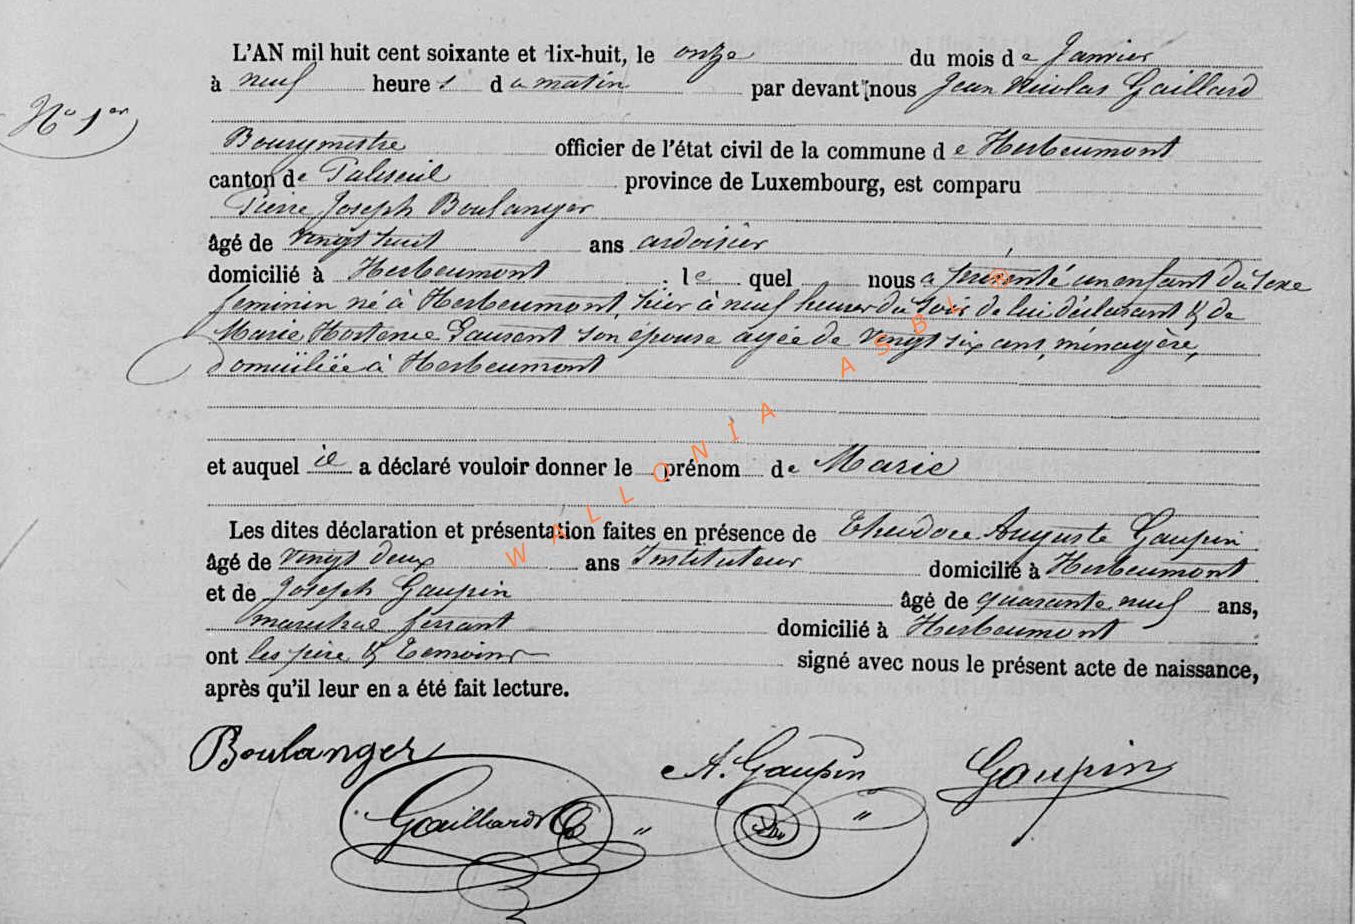 L'AN mil huit cent soixante et dix-huit, le onze du mois de Janvier
à neuf heures du matin par devant nous Jean Nicolas Gaillard
No 1er
Bourgmestre officier de l'état civil de la commune de Herbeumont
canton de Paliseul province de Luxembourg, est comparu
Pierre Joseph Boulanger
âgé de vingt huit ans ardoisier
domicilié à Herbeumont ; lequel nous a présenté un enfant du sexe
feminin né à Herbeumont, hier à neuf heures du soir de lui déclarant & de
Marie Hortence Laurent son épouse agée de vingt six ans, ménagère,
domiciliée à Herbeumont
et auquel il a déclaré vouloir donner le prénom de Marie
Les dites déclaration et présentation faites en présence de Theodore Auguste Gaupin
âgé de vingt deux ans Instituteur domicilié à Herbeumont
et de Joseph Gaupin âgé de quarante neuf ans,
marechal ferrant domicilié à Herbeumont
ont les père & temoins signé avec nous le présent acte de naissance,
après qu'il leur en a été fait lecture.
Boulanger A. Gaupin Gaupin
Gaillard
WALLONIA ASBL ®